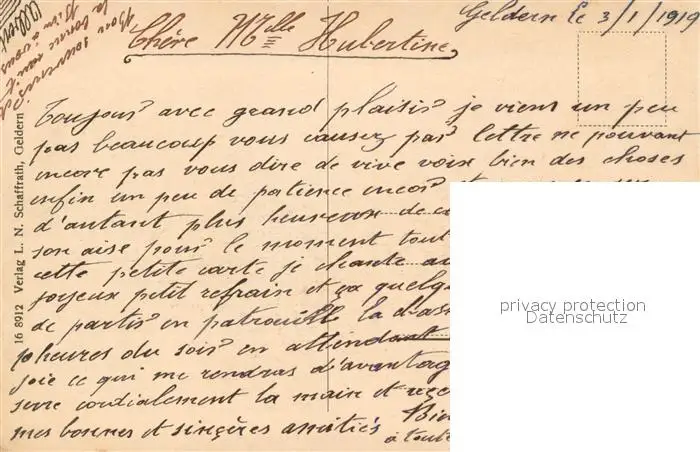 Geldern le 3/1/1919
Chère Mlle Hubertine,
Toujours avec grand plaisir je viens un peu
pas beaucoup vous causez par lettre ne pouvant
encore pas vous dire de vive voix bien des choses
enfin un peu de patience encor
d'autant plus heureux de
son aise pour le moment tout
cette petite carte je chante au
joyeux petit refrain et ça quelqu
de partir en patrouille la
heures du soir en attendant
joie ce qui me rendras d'avantag
serre cordialement la main et
mes bonnes et sincères amitiés Bien
à toute
souvenir d
la bonne
Bien à vous
Albert
16 8912 Verlag L. N. Schaffrath, Geldern
privacy protection
Datenschutz